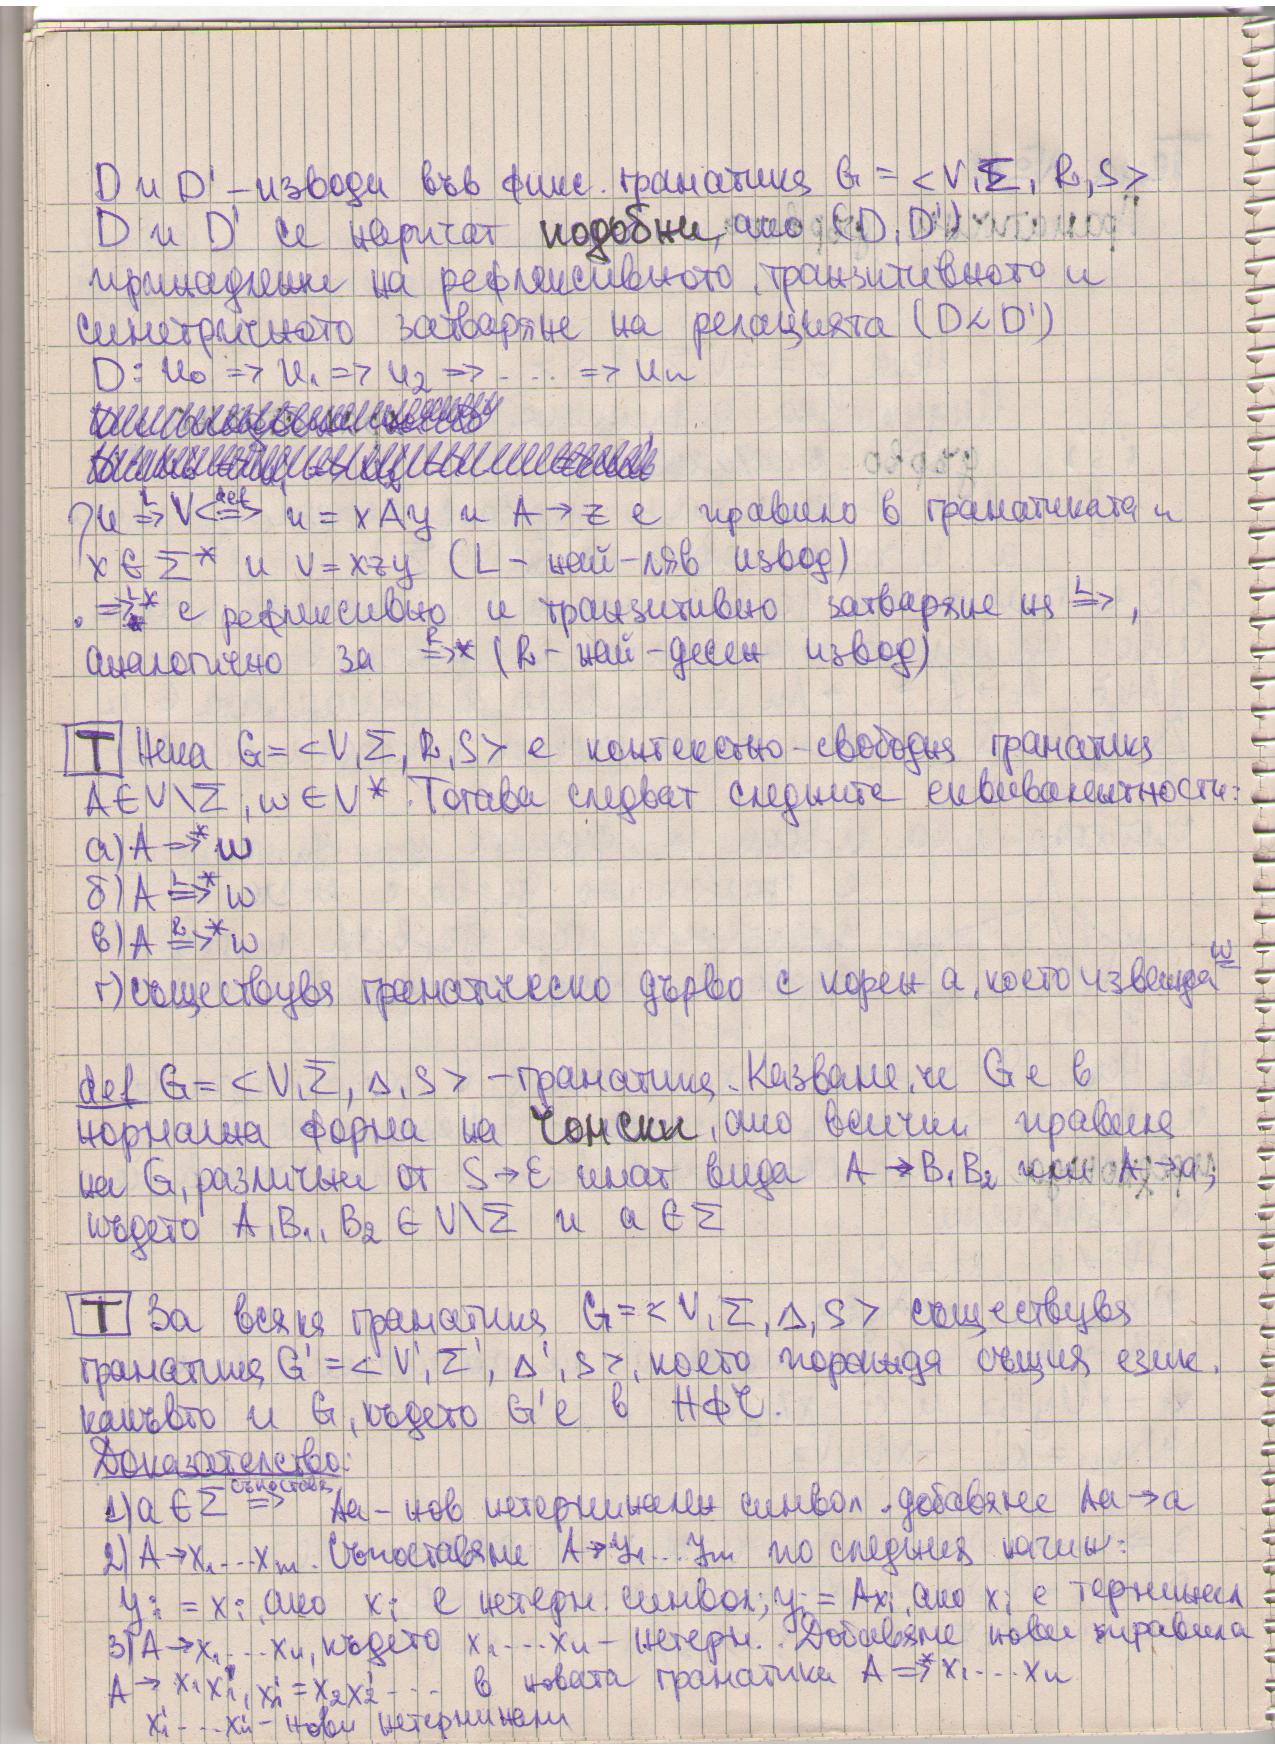 D и D' – изводи във фикс. граматика G = <V, Σ, R, S>
D и D' се наричат подобни, ако (D, D')
принадлежи на рефлексивното, транзитивното и
симетричното затваряне на релацията (D < D')
D: u₀ => u₁ => u₂ => . . . . => uₙ
u =ᴸ> v <=def=> u = xAy и A → z е правило в граматиката и
x ∈ Σ* и v = xzy (L – най-ляв извод)
. =ᴸ>* е рефлексивно и транзитивно затваряне на =ᴸ>,
аналогично за =ᴿ>* (R – най-десен извод)
T Нека G = <V, Σ, R, S> е контекстно-свободна граматика
A ∈ V\Σ, w ∈ V*. Тогава следват следните еквивалентности:
а) A =>* w
б) A =ᴸ>* w
в) A =ᴿ>* w
г) съществува граматическо дърво с корен a, което извежда w
def G = <V, Σ, Δ, S> – граматика. Казваме, че G е в
нормална форма на Чомски, ако всички правила
на G, различни от S → ε имат вида A → B₁B₂ или A → a,
където A, B₁, B₂ ∈ V\Σ и a ∈ Σ
T За всяка граматика G = <V, Σ, Δ, S> съществува
граматика G' = <V', Σ', Δ', S>, която поражда същия език,
какъвто и G, където G' е в НФЧ.
Доказателство:
1) a ∈ Σ =съпоставя=> Aa – нов нетерминален символ. добавяме Aa → a
2) A → x₁...xₘ. Съпоставяме A → y₁...yₘ по следния начин:
yᵢ = xᵢ, ако xᵢ е нетерм. символ; yᵢ = Axᵢ, ако xᵢ е терминал
3) A → x₁...xₙ, където x₁...xₙ – нетерм. Добавяме нови правила
A → x₁x₁', x₁' = x₂x₂' .... в новата граматика A =>* x₁....xₙ
x₁'...xₙ' – нови нетерминали